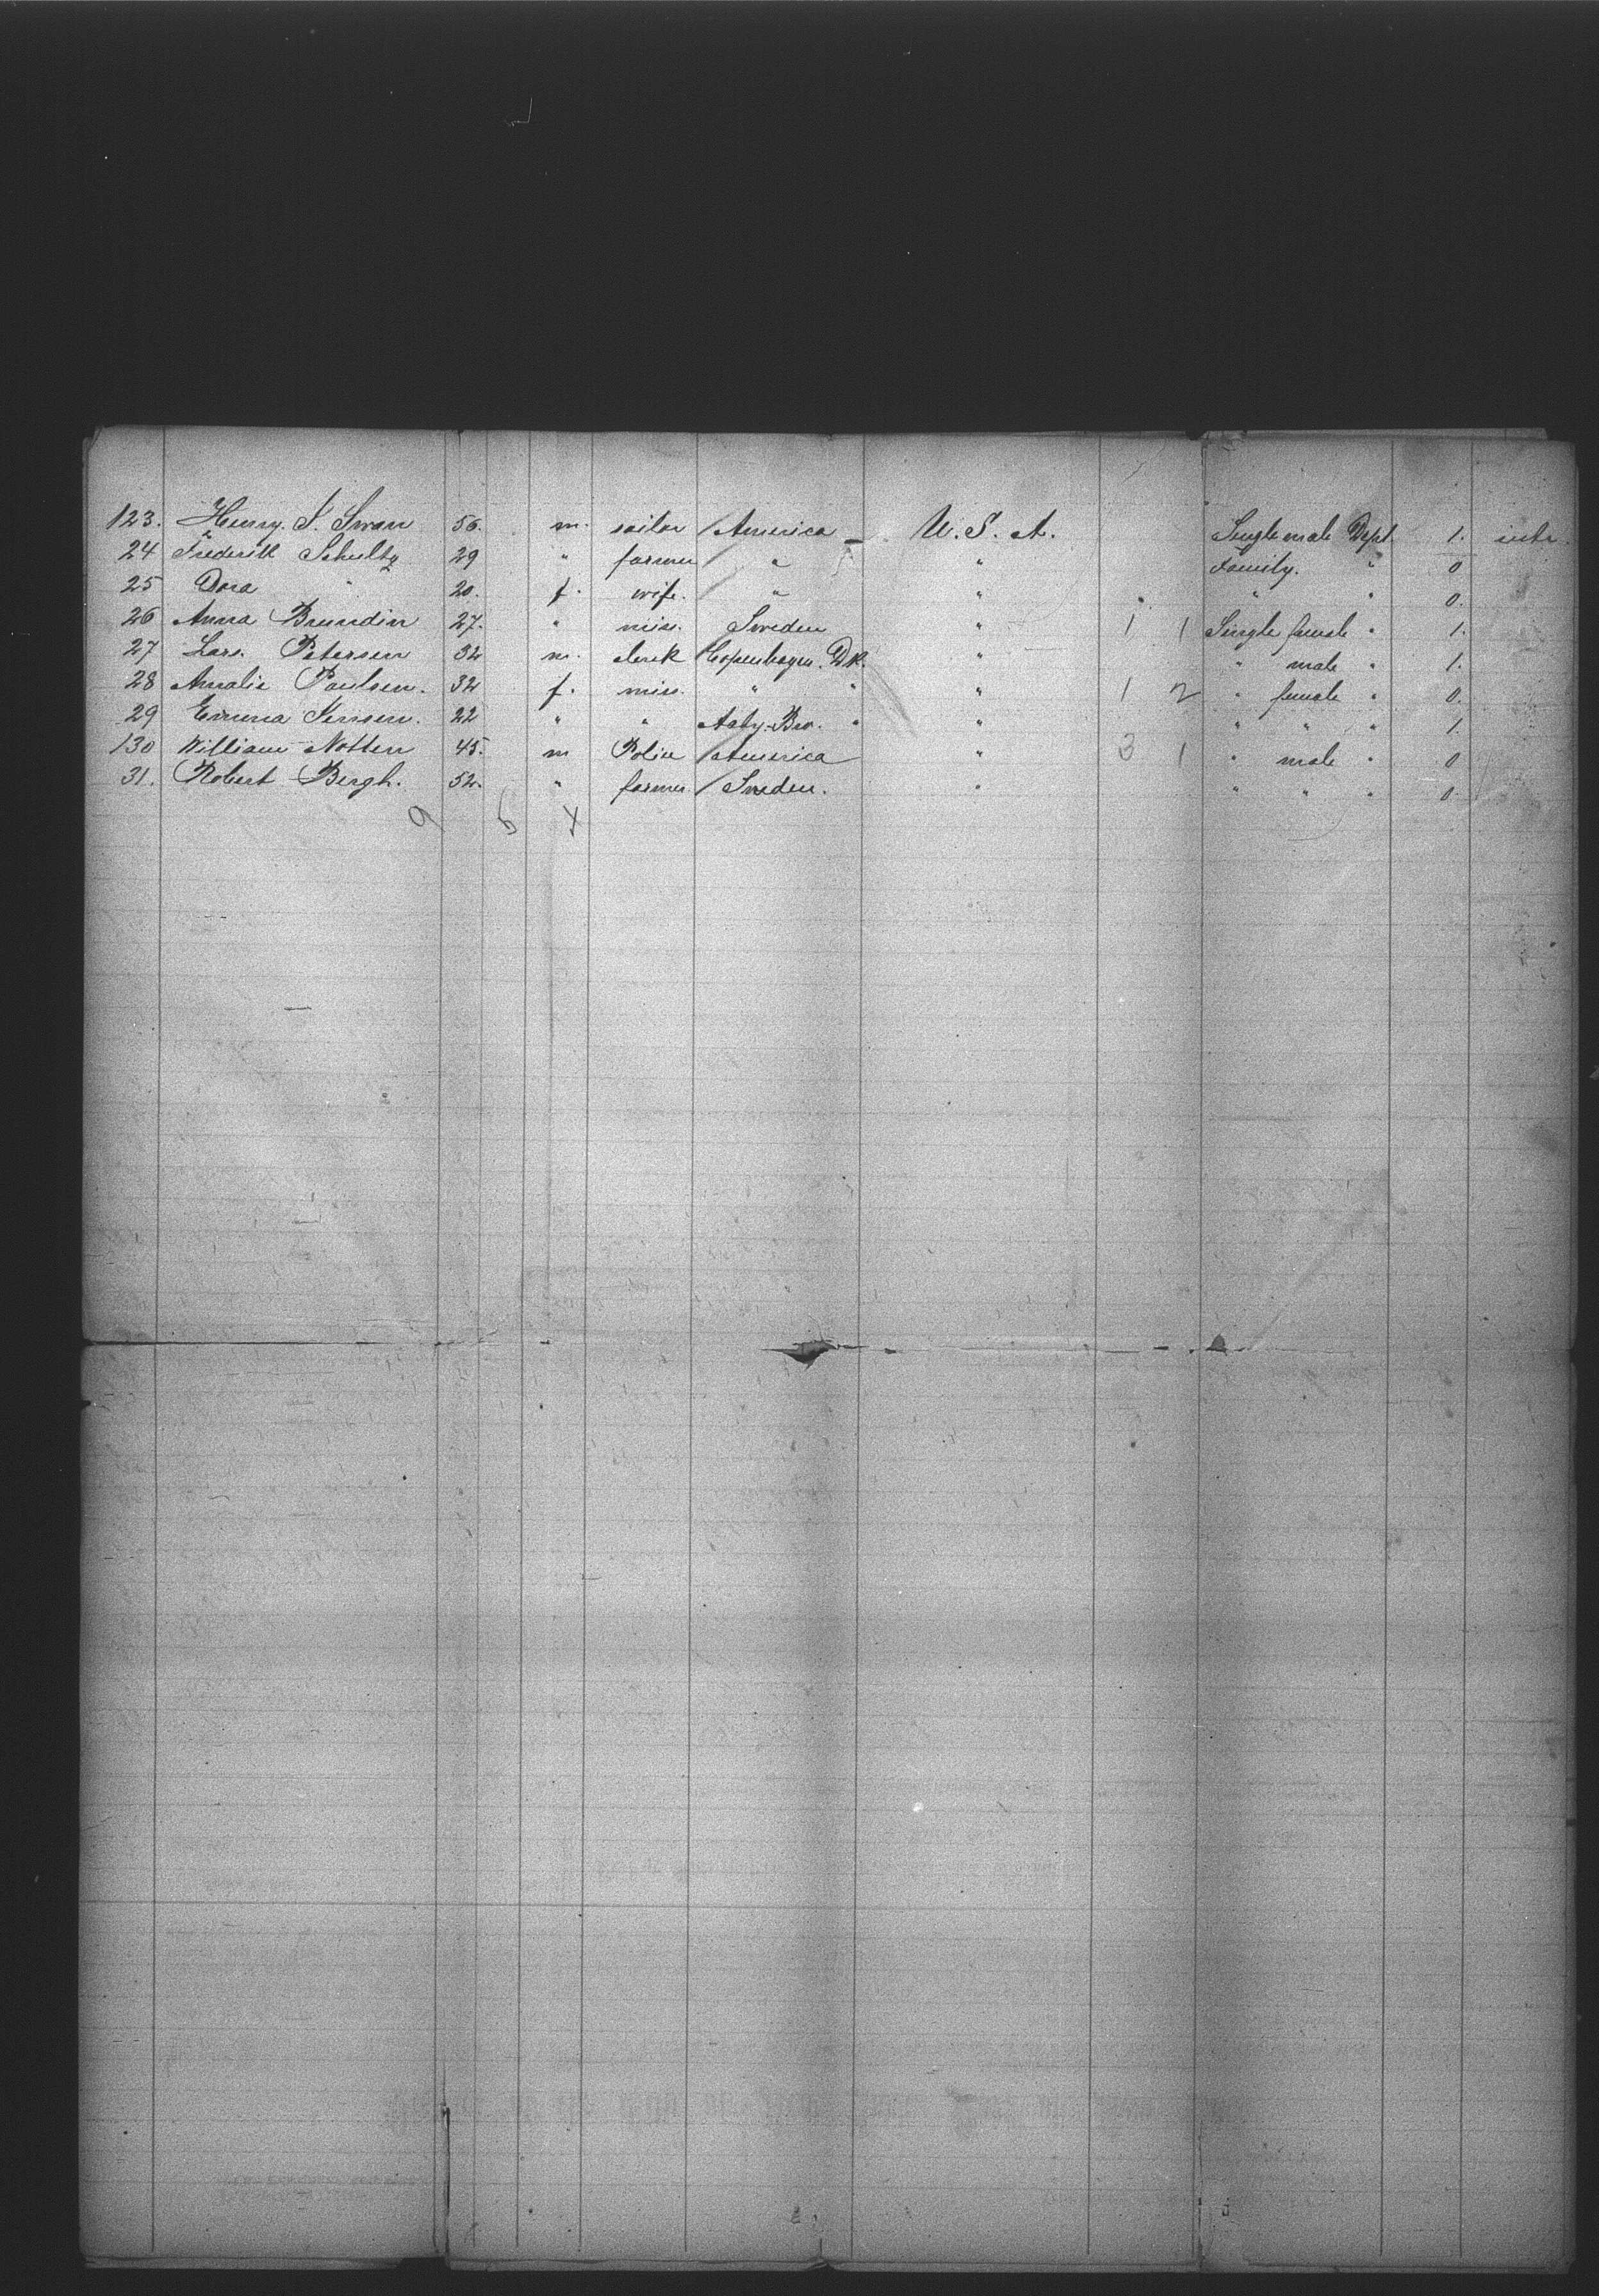 123. Henry S. Swan 56. m. sailor America U. S. A. Single male Dept. 1.
24 Frederik Schultz 29 " farmer " " Family. " 0
25 Dora " 20. f. wife. " " " " 0.
26 Anna Brundin 27. " miss. Sweden " 1 1 Single female " 1.
27 Lars. Petersen 32 m. clerk Copenhagen. Dk. " " male " 1.
28 Amalie Paulsen. 32 f. miss. " " " 1 2 " female " 0.
29 Emma Jensen. 22 " " Aaby-Bro. " " " " " 1.
130 William Notten 45. m Police America " 3 1 " male " 0
31. Robert Bergh. 52. " farmer Sweden. " " " " 0.
9 5 4